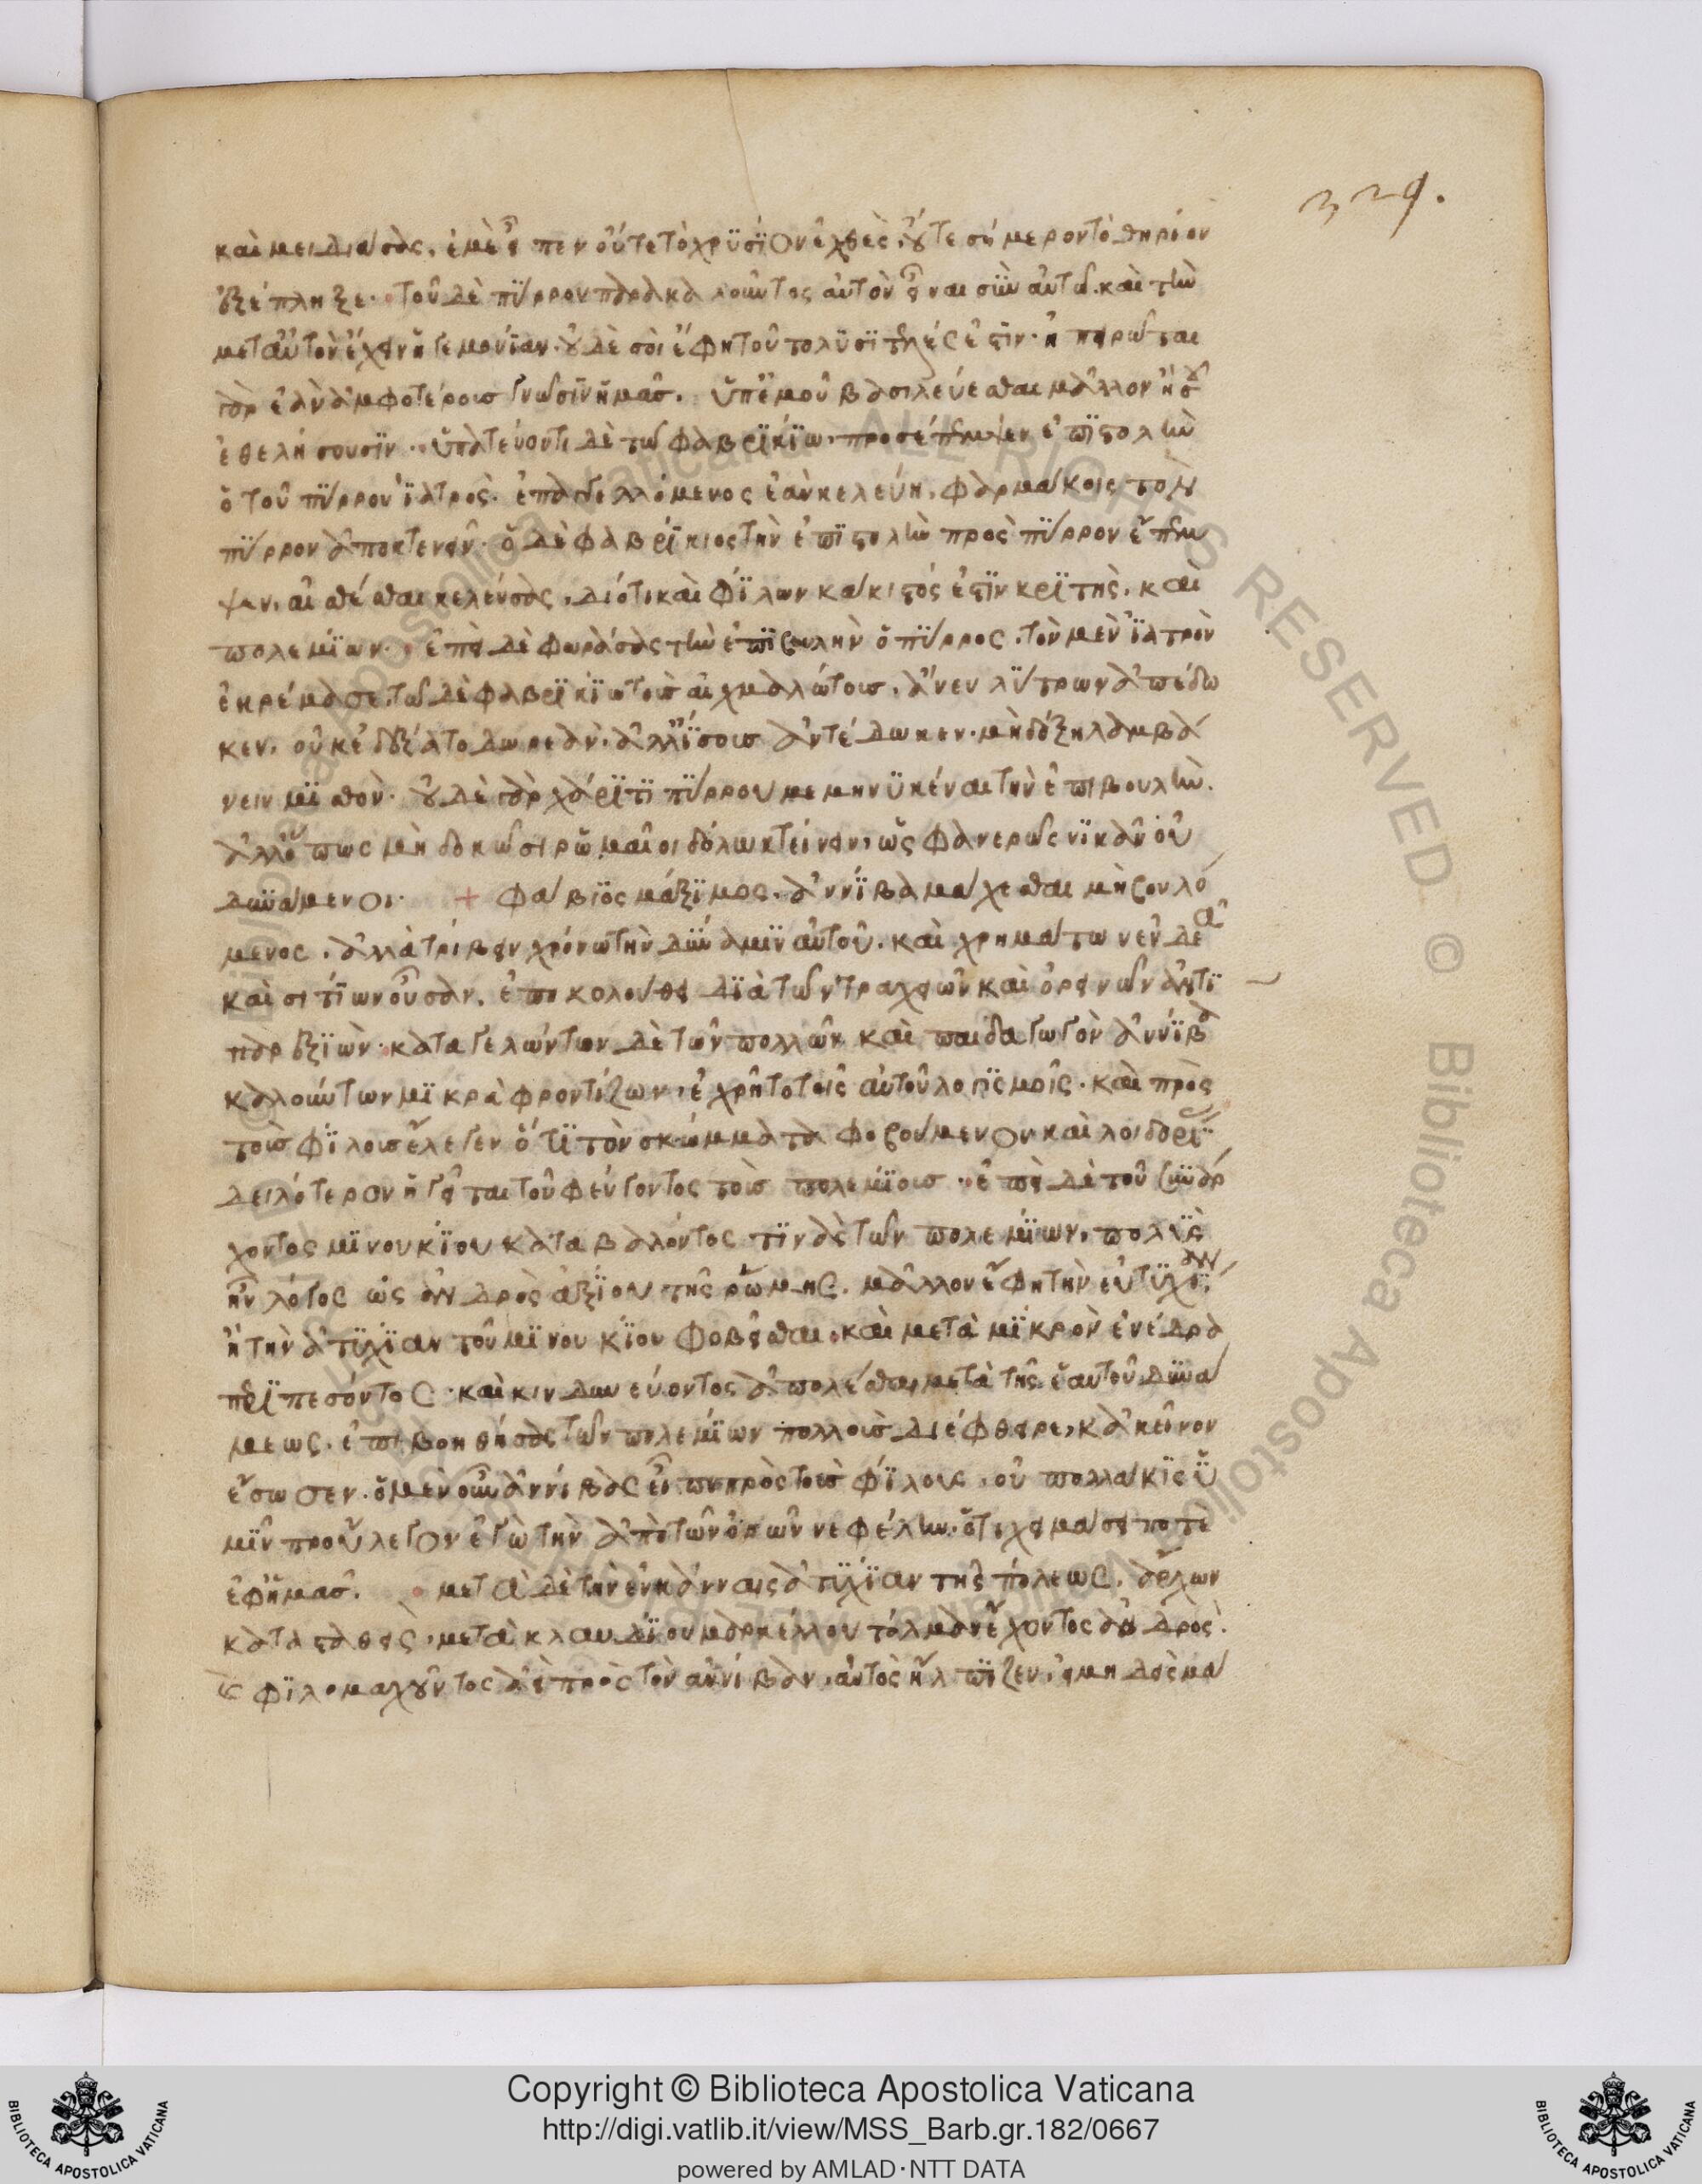 329.
καὶ μειδιάσας, ἐμὲ εἶπεν οὔτε τὸ χρϋσΐον ἐχθὲς, οὔτε σήμερον τὸ θηρίον
ἐξέπληξε. τοῦ δὲ πΰρρου παρακαλοῦντος αὐτὸν εἶναι σὺν αὐτῶ. καὶ τὴν
μετ αὐτὸν ἔχειν ἡγεμονΐαν. οὐδὲ σὸι ἔφη τοῦτο λϋσϊτελές ἐστϊν. ἠπειρῶται
γὰρ ἐὰν ἀμφοτέρους γνῶσϊν ἡμᾶς. ὑπ ἐμοῦ βασιλεύεσθαι μᾶλλον ἢ σοῦ
ἐθελήσουσϊν. ὑπατεύοντι δὲ τῶ φαβρϊκΐω, προσέπεμψεν ἐπϊστολὴν
ὁ τοῦ πΰρρου ϊατρὸς. ἐπαγγελλόμενος ἐὰν κελεύη, φαρμάκοις τὸν
πΰρρον ἀποκτενεῖν. ὁ δὲ φαβρΐκιος τὴν ἐπϊστολὴν πρὸς πΰρρον ἔπεμ
ψεν, αἰσθέσθαι κελεύσας, διότι καὶ φΐλων κάκιστός ἐστϊν κρϊτὴς, καὶ
πολεμΐων. ἐπεὶ δὲ φωράσας τὴν ἐπϊβουλὴν ὁ πΰρρος, τὸν μὲν ϊατρὸν
ἐκρέμασε, τῶ δὲ φαβρϊκΐω τοὺς αἰχμαλώτους, ἄνευ λΰτρων ἀπέδω
κεν. οὐκ ἐδέξατο δωρεὰν. ἀλλ ΐσους ἀντέδωκεν. μὴ δόξη λαμβά
νειν μϊσθὸν. οὐδὲ γὰρ χάρϊτϊ πΰρρου μεμηνϋκέναι τὴν ἐπιβουλὴν.
ἀλλ ὅπως μὴ δοκῶσι ρωμαῖοι δόλω κτείνειν, ὡς φανερῶς νϊκᾶν οὐ
δϋνάμενοι. + φάβϊος μάξϊμος. ἀννΐβα μάχεσθαι μὴ βουλό
μενος. ἀλλὰ τρίβειν χρόνω τὴν δύναμϊν αὐτοῦ. καὶ χρημάτων ἐνδεᾶ
καὶ σιτΐων οὖσαν. ἐπηκολούθει δϊὰ τῶν τραχειῶν καὶ ὀρεινῶν ἀντϊ
παρεξϊὼν. καταγελώντων δὲ τῶν πολλῶν καὶ παιδαγωγὸν ἀννΐβα
καλούντων μϊκρὰ φροντίζων, ἐχρῆτο τοῖς αὐτοῦ λογϊσμοῖς. καὶ πρὸς
τοὺς φΐλους ἔλεγεν ὅτϊ τὸν σκώμματα φοβούμενον καὶ λοιδορΐας
δειλότερον ἡγεῖται τοῦ φεύγοντος τοὺς πολεμΐους. ἐπεὶ δὲ τοῦ σϋνάρ
χοντος μϊνουκΐου καταβαλόντος τϊνὰς τῶν πολεμΐων, πολὺς
ἦν λόγος ὡς ἀνδρὸς ἀξΐου τῆς ρώμης. μᾶλλον ἔφη τὴν εὐτϋχΐαν
ἢ τὴν ἀτϋχΐαν τοῦ μϊνουκΐου φοβεῖσθαι. καὶ μετὰ μϊκρὸν ἐνέδρα
περϊπεσόντος. καὶ κινδυνεύοντος ἀπολέσθαι μετὰ τῆς ἑαυτοῦ δϋνά
μεως. ἐπιβοηθήσας τῶν πολεμΐων πολλοὺς διέφθειρε, κἀκεῖνον
ἔσωσεν. ὁ μὲν οὖν ἀννίβας εἶπε πρὸς τοὺς φΐλους. οὐ πολλάκϊς ὑ
μϊν προὔλεγον ἐγὼ τὴν ἀπὸ τῶν ὀρῶν νεφέλην. ὅτι χειμάσει ποτὲ
ἐφ ἡμᾶς. μετὰ δὲ τὴν ἐν κάνναις ἀτϋχΐαν τῆς πόλεως, ἄρχων
κατασταθεὶς, μετὰ κλαυδΐου μαρκέλλου τόλμαν ἔχοντος ἀνδρὸς.
καὶ φϊλομαχοῦντος ἀεὶ πρὸς τὸν ἀννίβαν, αὐτὸς ἤλπϊζεν, εἰ μηδεὶς μά
Copyright © Biblioteca Apostolica Vaticana
http://digi.vatlib.it/view/MSS_Barb.gr.182/0667
powered by AMLAD·NTT DATA